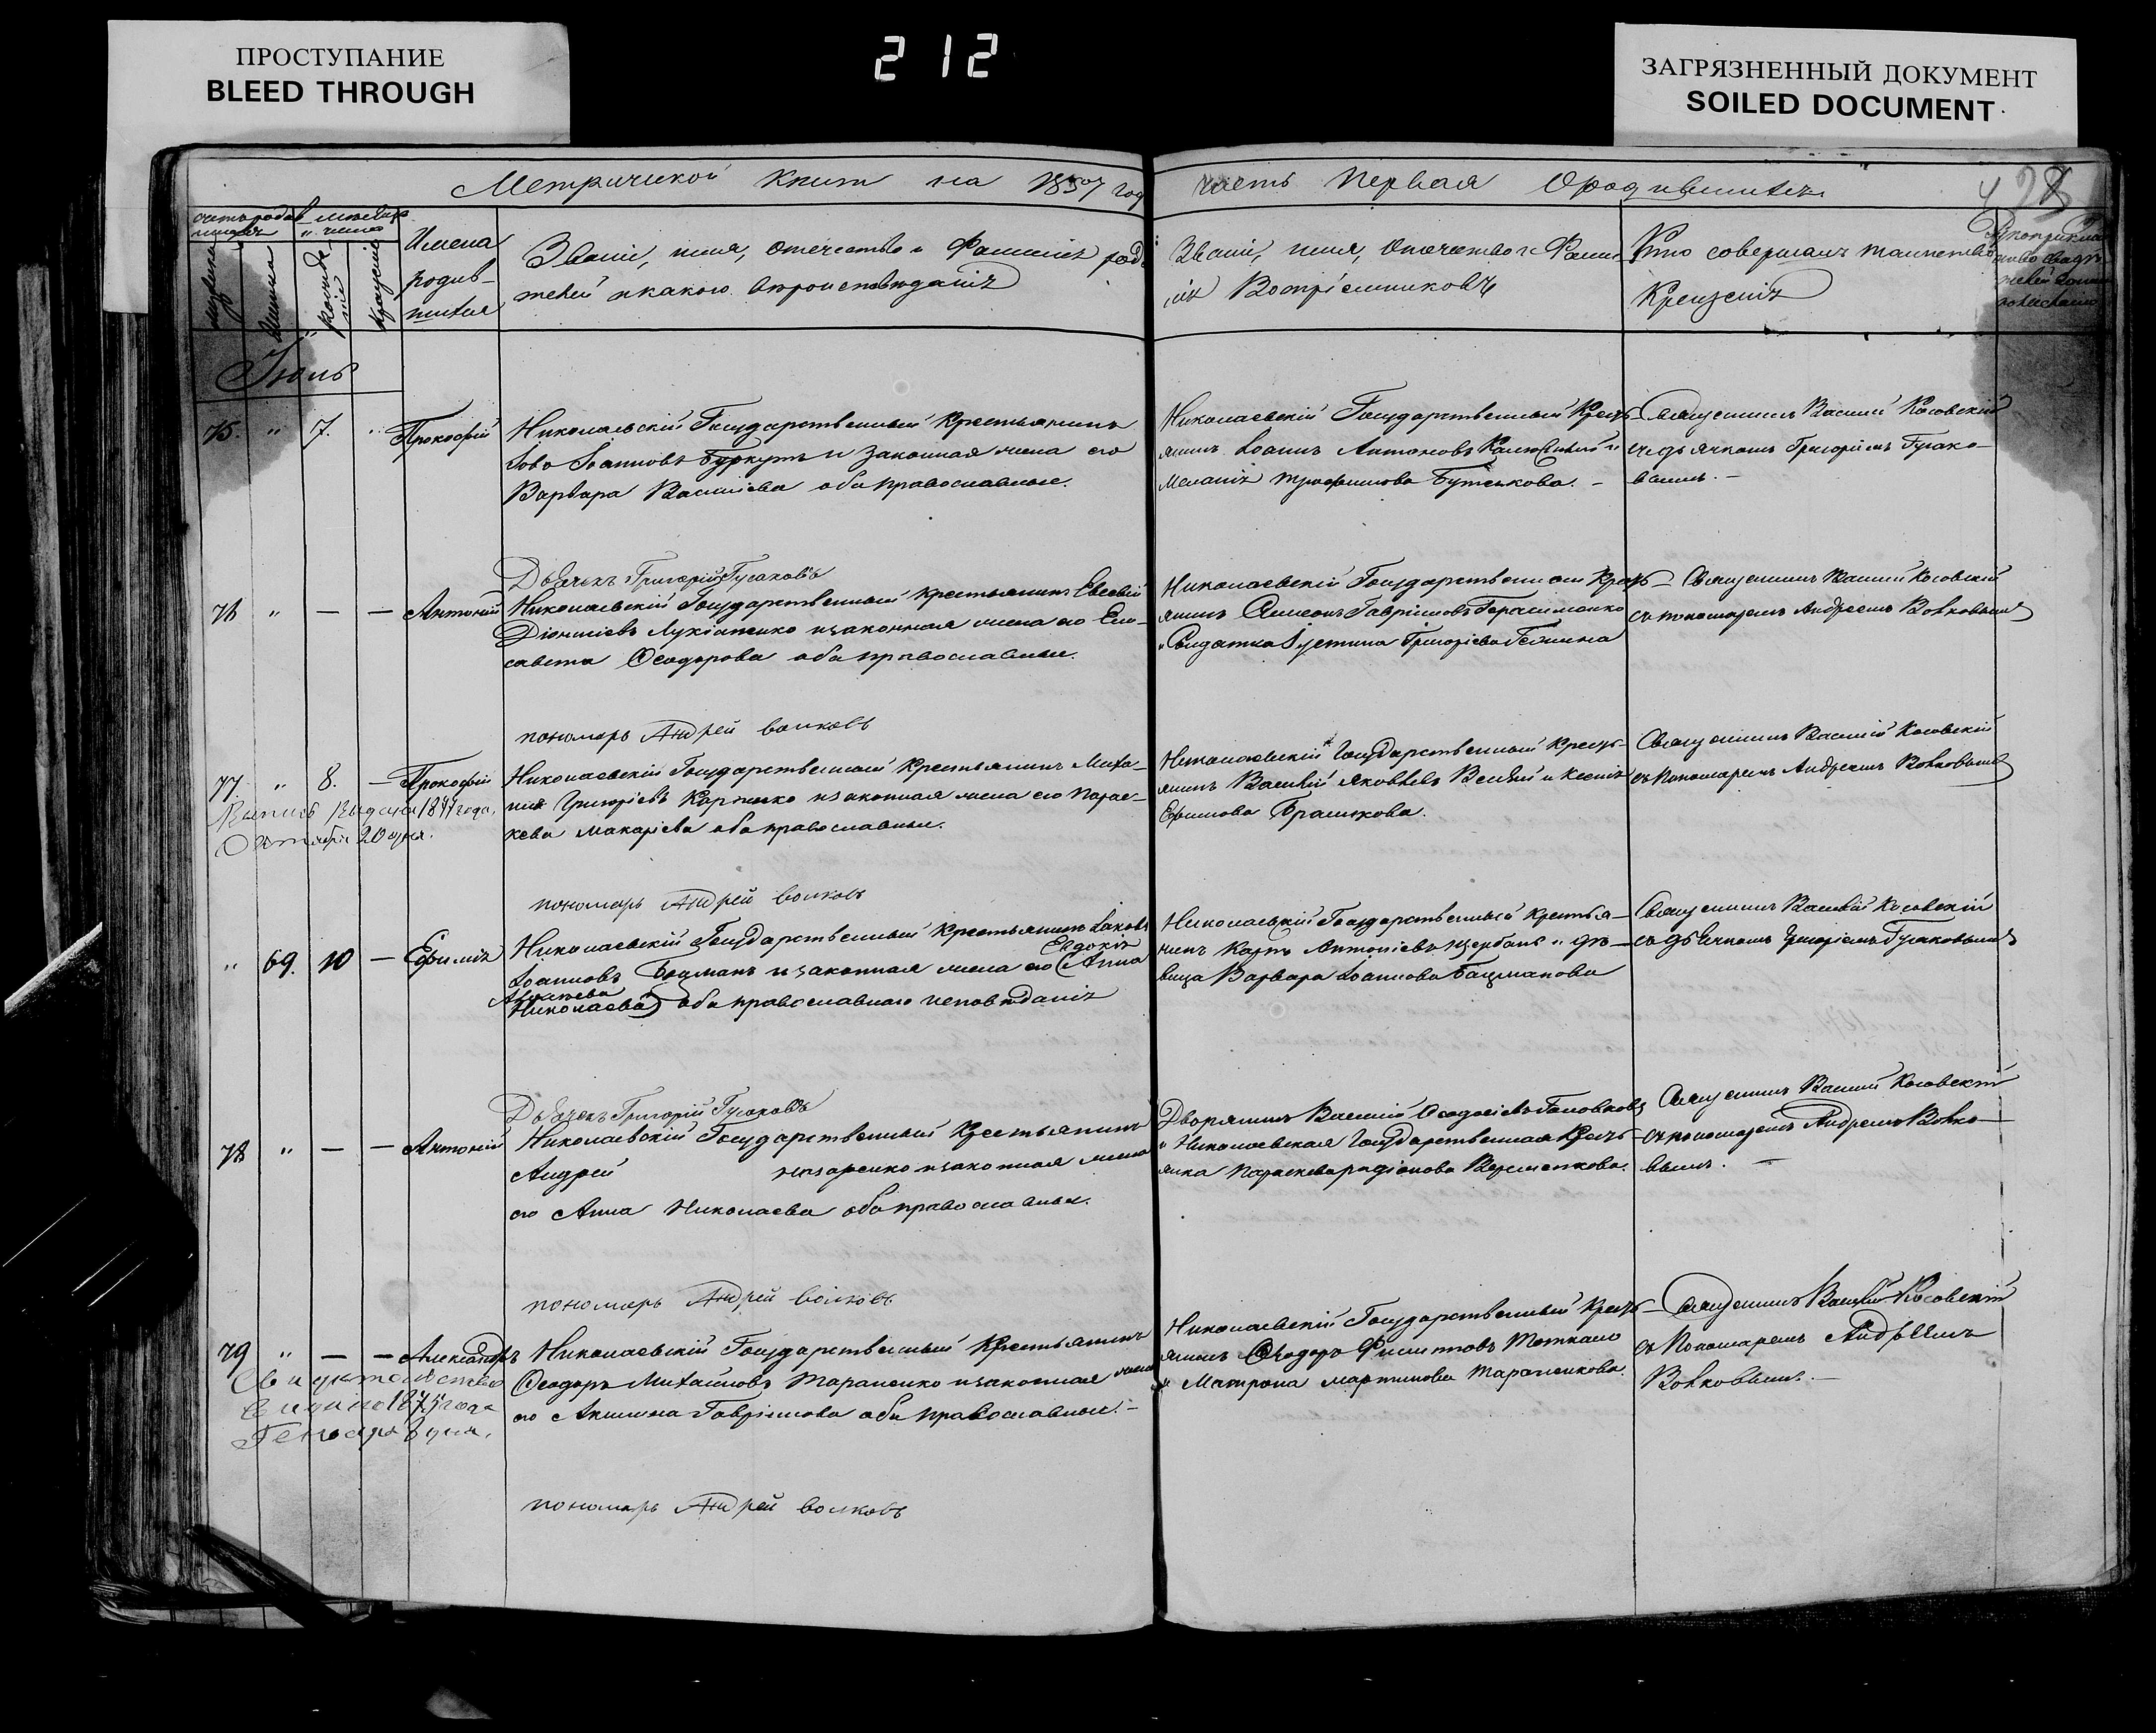 ПРОСТУПАНИЕ
BLEED THROUGH
212
ЗАГРЯЗНЕННЫЙ ДОКУМЕНТ
SOILED DOCUMENT
Метрической книги на 1857 год
часть первая О родившихся
Имена
родив-
шихся
Званіе, имя, отечество и Фамилія роди
телей и какого вероисповѣданія
Званіе, имя, Отечество и Фами-
лія Воспріемниковъ
Кто совершалъ таинство
Крещенія
Іюль
75. " 7. " Прокофій
Николаевскій Государственный Крестьянинъ
Іовъ Іоанновъ Буркутъ и законная жена его
Варвара Василіева оба православные.
Николаевскій Государственный Крест-
янинъ Іоаннъ Антоновъ и
Меланія Трофимова Бутькова. -
Священникъ Василій Косовскій
съ дьячкомъ Григоріемъ Гусако-
вымъ. -
Дьячекъ Григорій Гусаковъ
76 " — — Антоній
Николаевскій Государственный Крестьянинъ Евсевій
Діонисіевъ Лукіаненко и законная жена его Ели-
савета Ѳеодорова оба православные.
Николаевскій Государственный Крест-
янинъ Симеонъ Гавріиловъ Герасименко
и Солдатка Іустина Григоріева
Священникъ Василій Косовскій
съ пономаремъ Андреемъ Волковымъ
пономарь Андрей Волковъ
77. " 8. — Прокофій
Выпись выдана 1877 года,
Октября 20 дня.
Николаевскій Государственный Крестьянинъ Миха-
илъ Григоріевъ Карпенко и законная жена его Парас-
кева Макаріева оба православные.
Николаевскій Государственный Крест-
янинъ Василій Яковлевъ и Ксенія
Ефимова Брашкова.
Священникъ Василій Косовскій
съ Пономаремъ Андреемъ Волковымъ
пономарь Андрей Волковъ
" 69. 10 — Ефимія
Николаевскій Государственный Крестьянинъ Іаковъ
Евдокія
Іоанновъ Боцманъ и законная жена его (Анна
Николаева) оба православнаго исповѣданія
Николаевскій Государственный Крестья-
нинъ Карпъ Антоніевъ Щербань и дѣ-
вица Варвара Іоаннова Боцманова
Священникъ Василій Косовскій
съ дьячкомъ Григоріемъ Гусаковымъ
Дьячекъ Григорій Гусаковъ
78 " — — Антоній
Николаевскій Государственный Крестьянинъ
Андрей Назаренко и законная жена
его Анна Николаева оба православные.
Дворянинъ Василій Ѳеодосіевъ Головковъ
и Николаевская Государственная Крест-
янка Параскева Родіонова
Священникъ Василій Косовскій
съ пономаремъ Андреемъ Волко-
вымъ. —
пономарь Андрей Волковъ
79 " — — Александръ
Свидетельство
выдано 1875 года
Генваря 8 дня.
Николаевскій Государственный Крестьянинъ
Ѳеодоръ Михайловъ Тараненко и законная жена
его Акилина Гавріилова оба православные. -
Николаевскій Государственный Крест-
янинъ Ѳеодоръ Филиповъ
и Матрона Мартинова Тараненкова.
Священникъ Василій Косовскій
съ Пономаремъ Андреемъ
Волковымъ. —
пономарь Андрей Волковъ